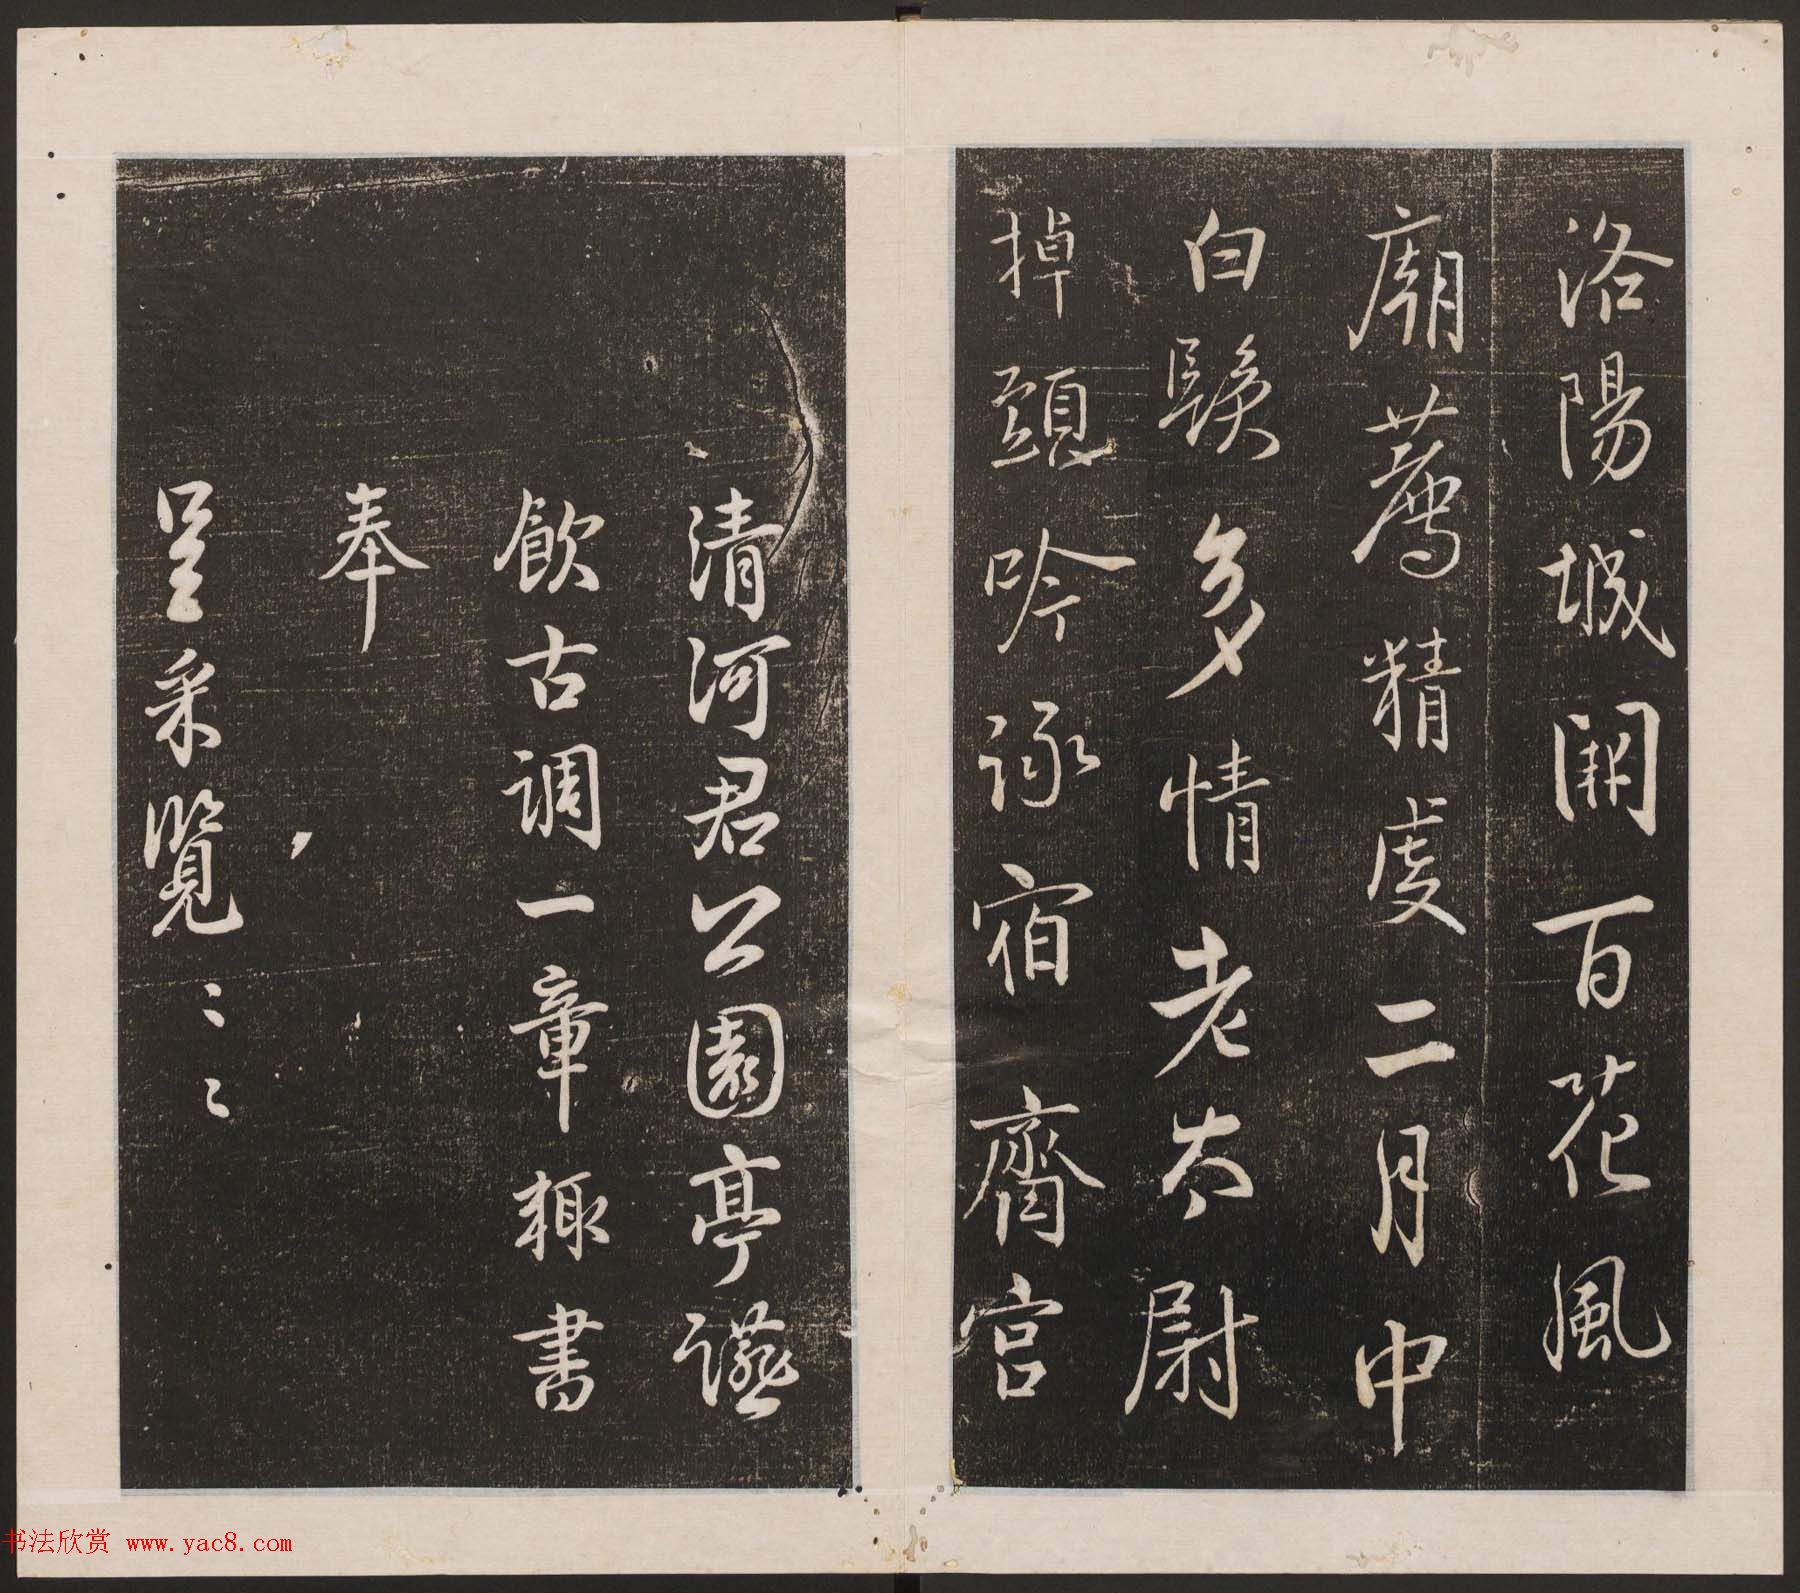 洛陽城闕百花風
廟薦精虔二月中
白鬢多情老太尉
掉頭吟詠宿齋宮
清河君公園亭讌
飲古調一章輒書
奉
呈采覽
书法欣赏 www.yac8.com